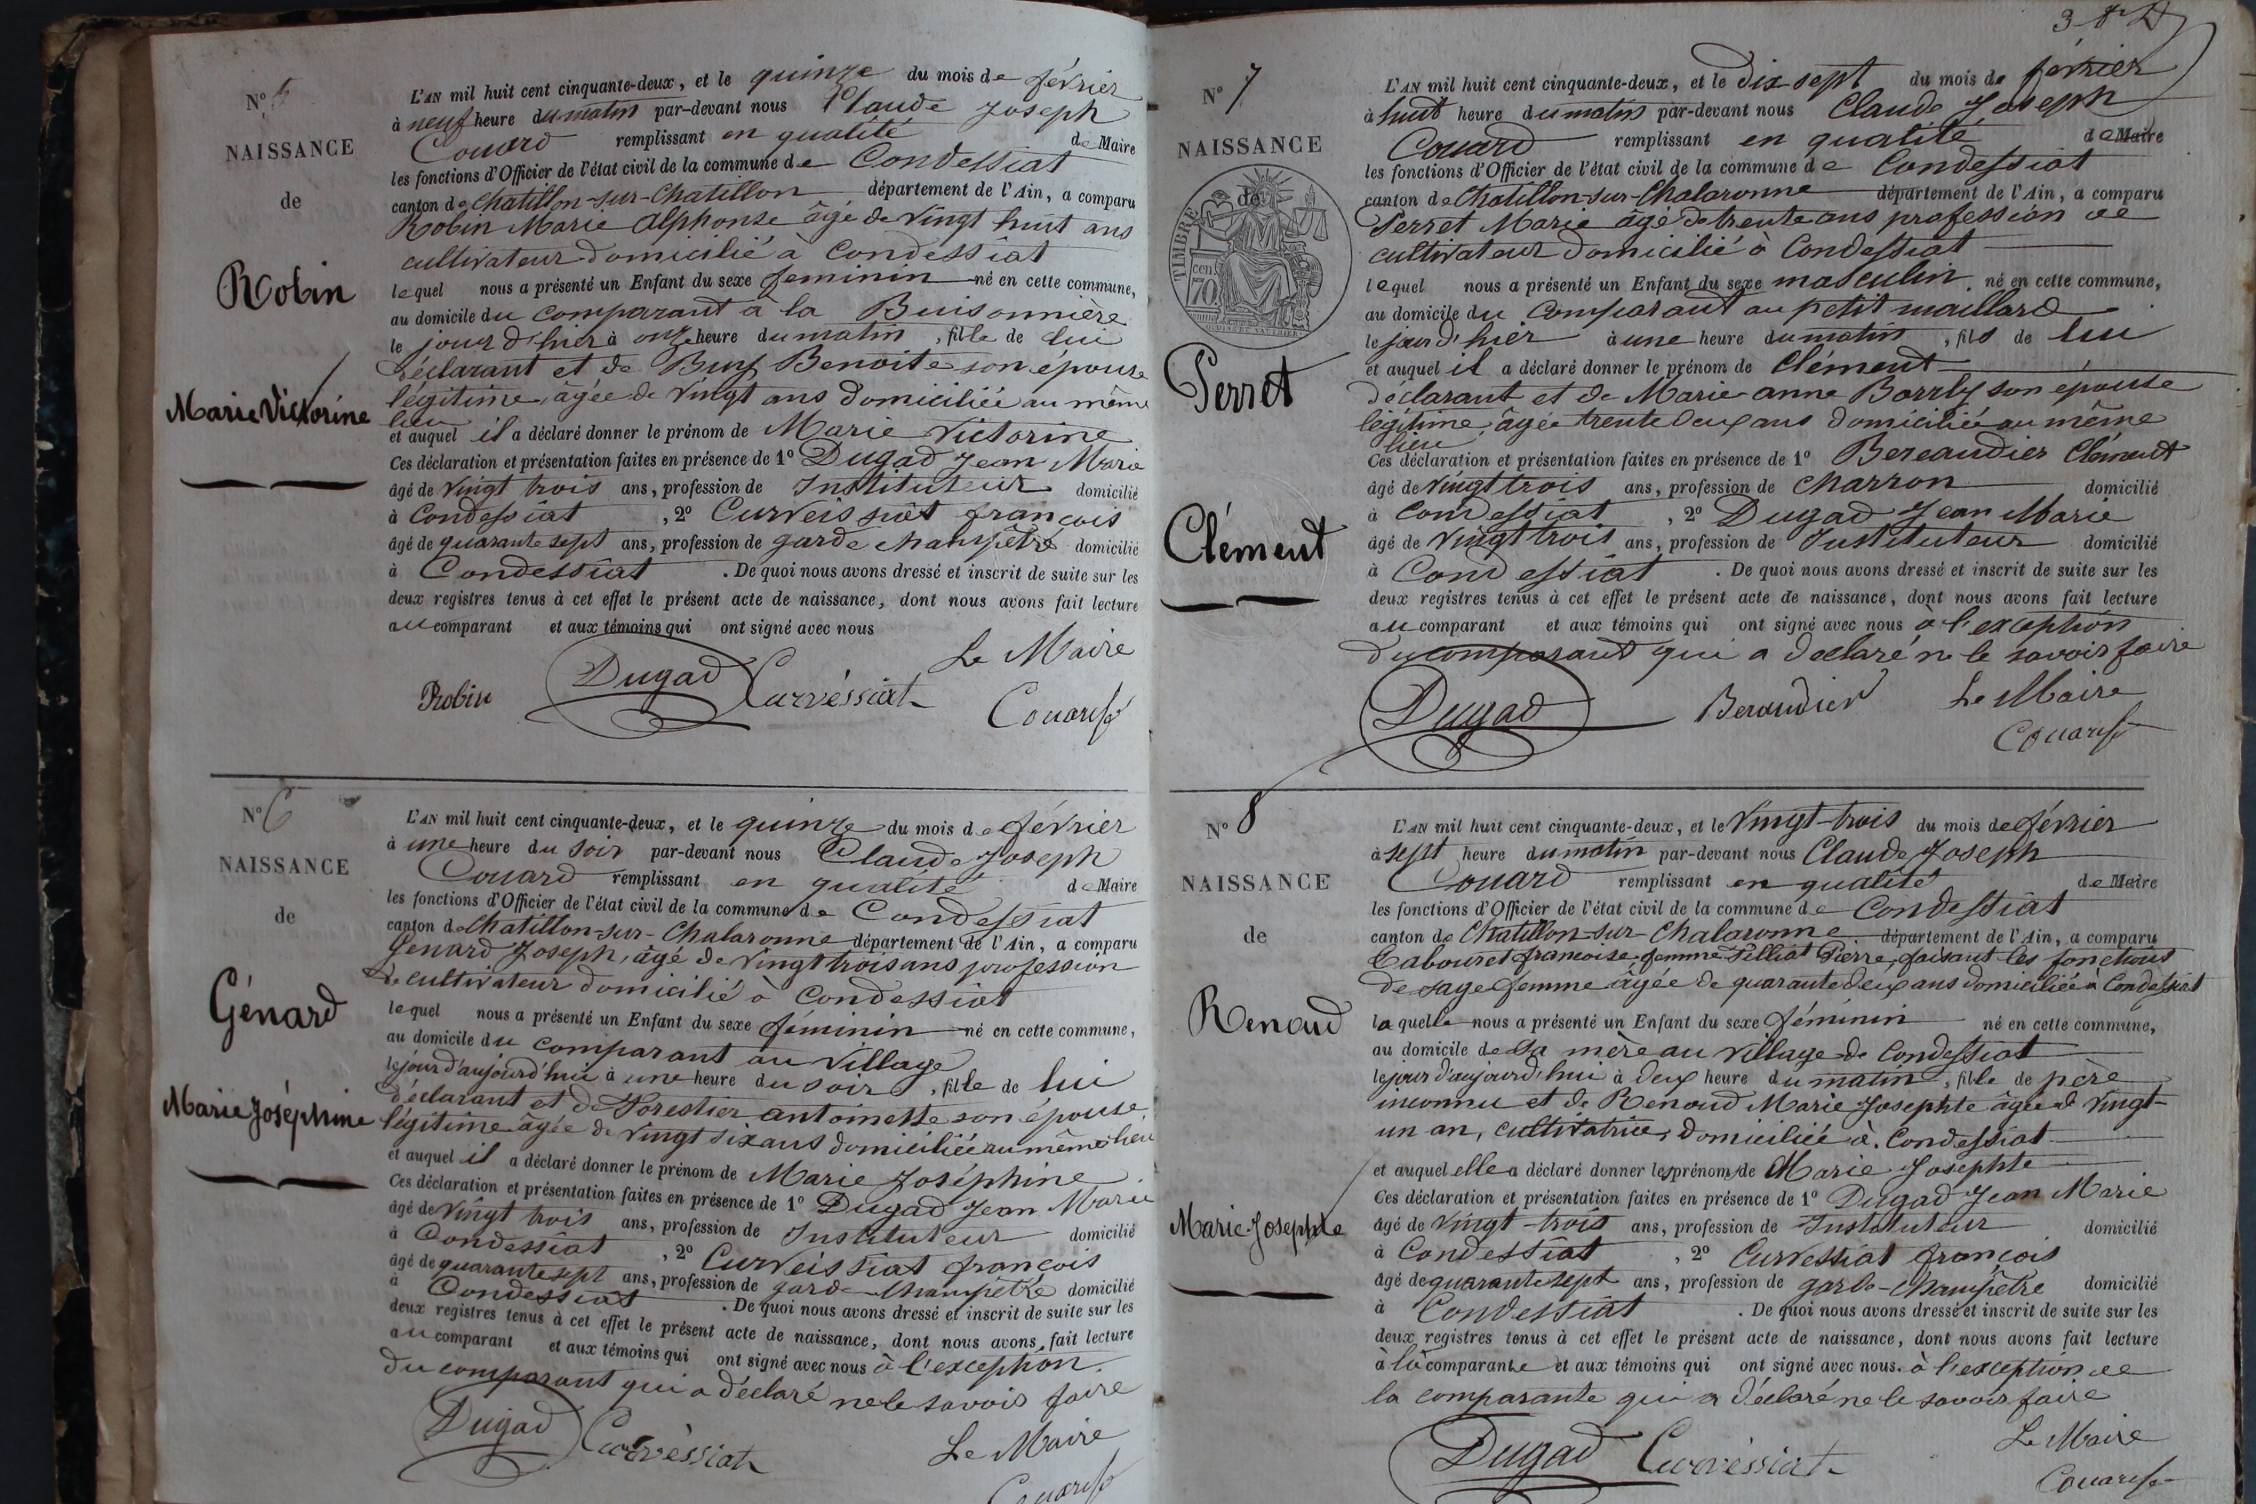 N° 5
NAISSANCE
de
Robin
Marie Victorine
L'AN mil huit cent cinquante-deux, et le quinze du mois de février
à neuf heure du matin par-devant nous Claude Joseph
Couard remplissant en qualité de Maire
les fonctions d'Officier de l'état civil de la commune de Condessiat
canton de Chatillon-sur-Chatillon département de l'Ain, a comparu
Robin Marie Alphonse âgé de vingt huit ans
cultivateur domicilié à Condessiat
lequel nous a présenté un Enfant du sexe feminin né en cette commune,
au domicile du comparant à la Buisonnière
le jour d'hier à onze heure du matin, fille de lui
déclarant et de Buy Benoite son épouse
légitime, âgée de vingt ans domiciliée au même
lieu
et auquel il a déclaré donner le prénom de Marie Victorine
Ces déclaration et présentation faites en présence de 1° Dugad Jean Marie
âgé de vingt trois ans, profession de Instituteur domicilié
à Condessiat, 2° Curveissiat françois
âgé de quarante sept ans, profession de garde champêtre domicilié
à Condessiat. De quoi nous avons dressé et inscrit de suite sur les
deux registres tenus à cet effet le présent acte de naissance, dont nous avons fait lecture
au comparant et aux témoins qui ont signé avec nous
Le Maire
Robin Dugad Curvéssiat Couard
N° 6
NAISSANCE
de
Génard
Marie Joséphine
L'AN mil huit cent cinquante-deux, et le quinze du mois de février
à une heure du soir par-devant nous Claude Joseph
Couard remplissant en qualité de Maire
les fonctions d'Officier de l'état civil de la commune de Condessiat
canton de Chatillon-sur-Chalaronne département de l'Ain, a comparu
Genard Joseph, âgé de vingt trois ans profession
de cultivateur domicilié à Condessiat
lequel nous a présenté un Enfant du sexe féminin né en cette commune,
au domicile du comparant au village
le jour d'aujourd'hui à une heure du soir, fille de lui
déclarant et de Forestier antoinette son épouse,
légitime âgée de vingt six ans domiciliée au même lieu
et auquel il a déclaré donner le prénom de Marie Joséphine
Ces déclaration et présentation faites en présence de 1° Dugad Jean Marie
âgé de vingt trois ans, profession de Instituteur domicilié
à Condessiat, 2° Curveissiat françois
âgé de quarante sept ans, profession de garde champêtre domicilié
à Condessiat. De quoi nous avons dressé et inscrit de suite sur les
deux registres tenus à cet effet le présent acte de naissance, dont nous avons fait lecture
au comparant et aux témoins qui ont signé avec nous à l'exception
du comparant qui a déclaré ne le savoir faire
Dugad Curvéssiat Le Maire
Couard
N° 7
NAISSANCE
de
TIMBRE
70 cen.
Perret
Clément
L'AN mil huit cent cinquante-deux, et le dix sept du mois de février
à huit heure du matin par-devant nous Claude Joseph
Couard remplissant en qualité de Maire
les fonctions d'Officier de l'état civil de la commune de Condessiat
canton de Chatillon-sur-Chalaronne département de l'Ain, a comparu
Perret Marie âgé de trente ans profession de
cultivateur domicilié à Condessiat
lequel nous a présenté un Enfant du sexe masculin né en cette commune,
au domicile du comparant au petit maillard
le jour d'hier à une heure du matin, fils de lui
et auquel il a déclaré donner le prénom de Clément
déclarant et de Marie anne Borrly son épouse
légitime, âgée trente deux ans domiciliée au même
lieu
Ces déclaration et présentation faites en présence de 1° Bereaudier Clément
âgé de vingt trois ans, profession de charron domicilié
à Condessiat, 2° Dugad Jean Marie
âgé de vingt trois ans, profession de Instituteur domicilié
à Condessiat. De quoi nous avons dressé et inscrit de suite sur les
deux registres tenus à cet effet le présent acte de naissance, dont nous avons fait lecture
au comparant et aux témoins qui ont signé avec nous à l'exception
du comparant qui a déclaré ne le savoir faire
Dugad Beraudier Le Maire
Couard
N° 8
NAISSANCE
de
Renoud
Marie Josephte
L'AN mil huit cent cinquante-deux, et le vingt-trois du mois de février
à sept heure du matin par-devant nous Claude Joseph
Couard remplissant en qualité de Maire
les fonctions d'Officier de l'état civil de la commune de Condessiat
canton de Chatillon-sur-Chalaronne département de l'Ain, a comparu
Tabouret françoise femme Pelliat Pierre, faisant les fonctions
de sage femme âgée de quarante deux ans domiciliée à Condessiat
laquelle nous a présenté un Enfant du sexe féminin né en cette commune,
au domicile de sa mère au village de Condessiat
le jour d'aujourd'hui à deux heure du matin, fille de père
inconnu et de Renoud Marie Josephte âgée de vingt-
un an, cultivatrice, domiciliée à Condessiat
et auquel elle a déclaré donner les prénoms de Marie Josephte
Ces déclaration et présentation faites en présence de 1° Dugad Jean Marie
âgé de vingt-trois ans, profession de Instituteur domicilié
à Condessiat, 2° Curvessiat françois
âgé de quarante sept ans, profession de garde-champêtre domicilié
à Condessiat. De quoi nous avons dressé et inscrit de suite sur les
deux registres tenus à cet effet le présent acte de naissance, dont nous avons fait lecture
à la comparante et aux témoins qui ont signé avec nous. à l'exception de
la comparante qui a déclaré ne le savoir faire
Dugad Curvéssiat Le Maire
Couard